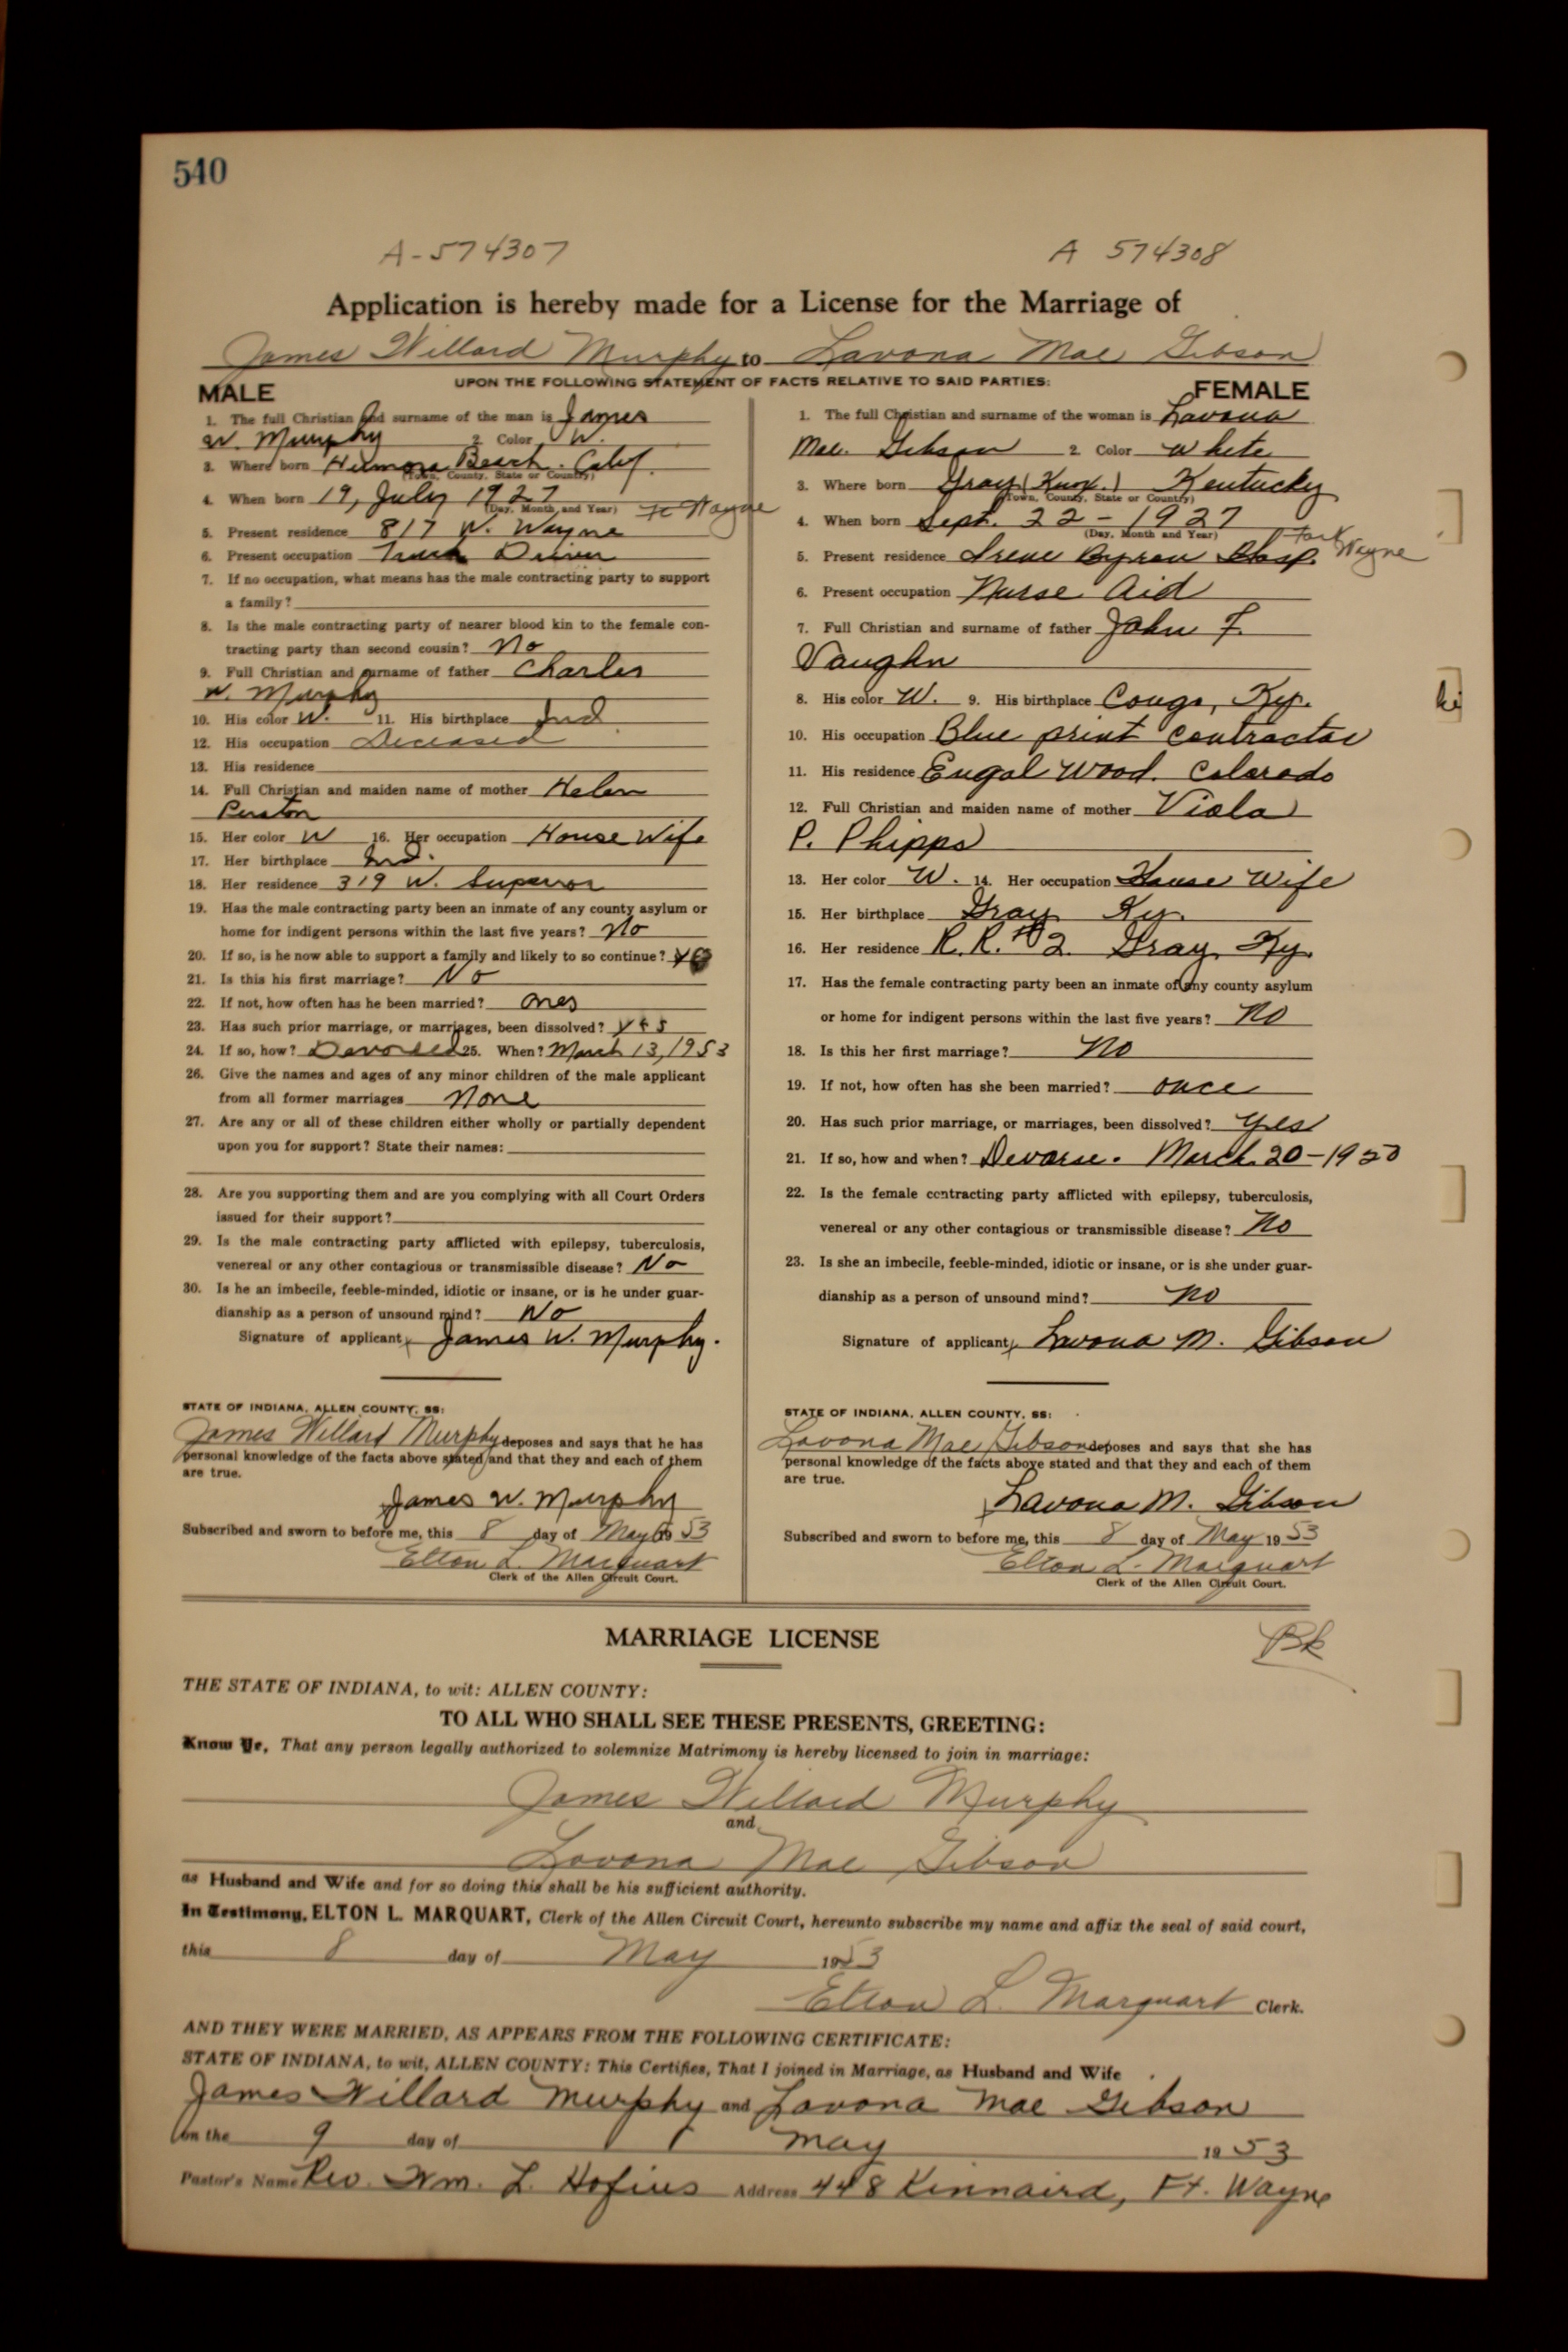 540
A-574307
A 574308
Application is hereby made for a License for the Marriage of
James Willard Murphy to Lavona Mae Gibson
UPON THE FOLLOWING STATEMENT OF FACTS RELATIVE TO SAID PARTIES:
MALE
1. The full Christian and surname of the man is James
W. Murphy 2. Color W.
3. Where born Hermosa Beach. Calif.
(Town, County, State or Country)
4. When born 19, July 1927
(Day, Month and Year)
Ft Wayne
5. Present residence 817 W. Wayne
6. Present occupation Truck Driver
7. If no occupation, what means has the male contracting party to support
a family?
8. Is the male contracting party of nearer blood kin to the female con-
tracting party than second cousin? No
9. Full Christian and surname of father Charles
W. Murphy
10. His color W. 11. His birthplace Ind
12. His occupation Deceased
13. His residence
14. Full Christian and maiden name of mother Helen
15. Her color W 16. Her occupation House Wife
17. Her birthplace Ind.
18. Her residence 319 W. Superior
19. Has the male contracting party been an inmate of any county asylum or
home for indigent persons within the last five years? No
20. If so, is he now able to support a family and likely to so continue? Yes
21. Is this his first marriage? No
22. If not, how often has he been married? Ones
23. Has such prior marriage, or marriages, been dissolved? Yes
24. If so, how? Devorsed 25. When? March 13, 1953
26. Give the names and ages of any minor children of the male applicant
from all former marriages None
27. Are any or all of these children either wholly or partially dependent
upon you for support? State their names:
28. Are you supporting them and are you complying with all Court Orders
issued for their support?
29. Is the male contracting party afflicted with epilepsy, tuberculosis,
venereal or any other contagious or transmissible disease? No
30. Is he an imbecile, feeble-minded, idiotic or insane, or is he under guar-
dianship as a person of unsound mind? No
Signature of applicant, James W. Murphy.
STATE OF INDIANA, ALLEN COUNTY, SS:
James Willard Murphy deposes and says that he has
personal knowledge of the facts above stated and that they and each of them
are true.
James W. Murphy
Subscribed and sworn to before me, this 8 day of May 19 53
Elton L. Marquart
Clerk of the Allen Circuit Court.
FEMALE
1. The full Christian and surname of the woman is Lavona
Mae. Gibson 2. Color White
3. Where born Gray (Knox.) Kentucky
(Town, County, State or Country)
4. When born Sept. 22-1927
(Day, Month and Year)
Fort Wayne
5. Present residence Irene Byron Hosp.
6. Present occupation Nurse Aid
7. Full Christian and surname of father John F.
Vaughn
8. His color W. 9. His birthplace Congo, Ky.
10. His occupation Blue print Contractor
11. His residence Engal Wood. Colorado
12. Full Christian and maiden name of mother Viola
P. Phipps
13. Her color W. 14. Her occupation House Wife
15. Her birthplace Gray Ky.
16. Her residence R.R. #2 Gray, Ky.
17. Has the female contracting party been an inmate of any county asylum
or home for indigent persons within the last five years? No
18. Is this her first marriage? No
19. If not, how often has she been married? Once
20. Has such prior marriage, or marriages, been dissolved? Yes
21. If so, how and when? Devorse. March 20-1950
22. Is the female contracting party afflicted with epilepsy, tuberculosis,
venereal or any other contagious or transmissible disease? No
23. Is she an imbecile, feeble-minded, idiotic or insane, or is she under guar-
dianship as a person of unsound mind? No
Signature of applicant, Lavona M. Gibson
STATE OF INDIANA, ALLEN COUNTY, SS:
Lavona Mae Gibson deposes and says that she has
personal knowledge of the facts above stated and that they and each of them
are true.
Lavona M. Gibson
Subscribed and sworn to before me, this 8 day of May 19 53
Elton L. Marquart
Clerk of the Allen Circuit Court.
MARRIAGE LICENSE
THE STATE OF INDIANA, to wit: ALLEN COUNTY:
TO ALL WHO SHALL SEE THESE PRESENTS, GREETING:
Know Ye, That any person legally authorized to solemnize Matrimony is hereby licensed to join in marriage:
James Willard Murphy
and
Lavona Mae Gibson
as Husband and Wife and for so doing this shall be his sufficient authority.
In Testimony, ELTON L. MARQUART, Clerk of the Allen Circuit Court, hereunto subscribe my name and affix the seal of said court,
this 8 day of May 1953
Elton L. Marquart Clerk.
AND THEY WERE MARRIED, AS APPEARS FROM THE FOLLOWING CERTIFICATE:
STATE OF INDIANA, to wit, ALLEN COUNTY: This Certifies, That I joined in Marriage, as Husband and Wife
James Willard Murphy and Lavona Mae Gibson
on the 9 day of May 19 53
Pastor's Name Rev. Wm. L. Hofius Address 448 Kinnaird, Ft. Wayne